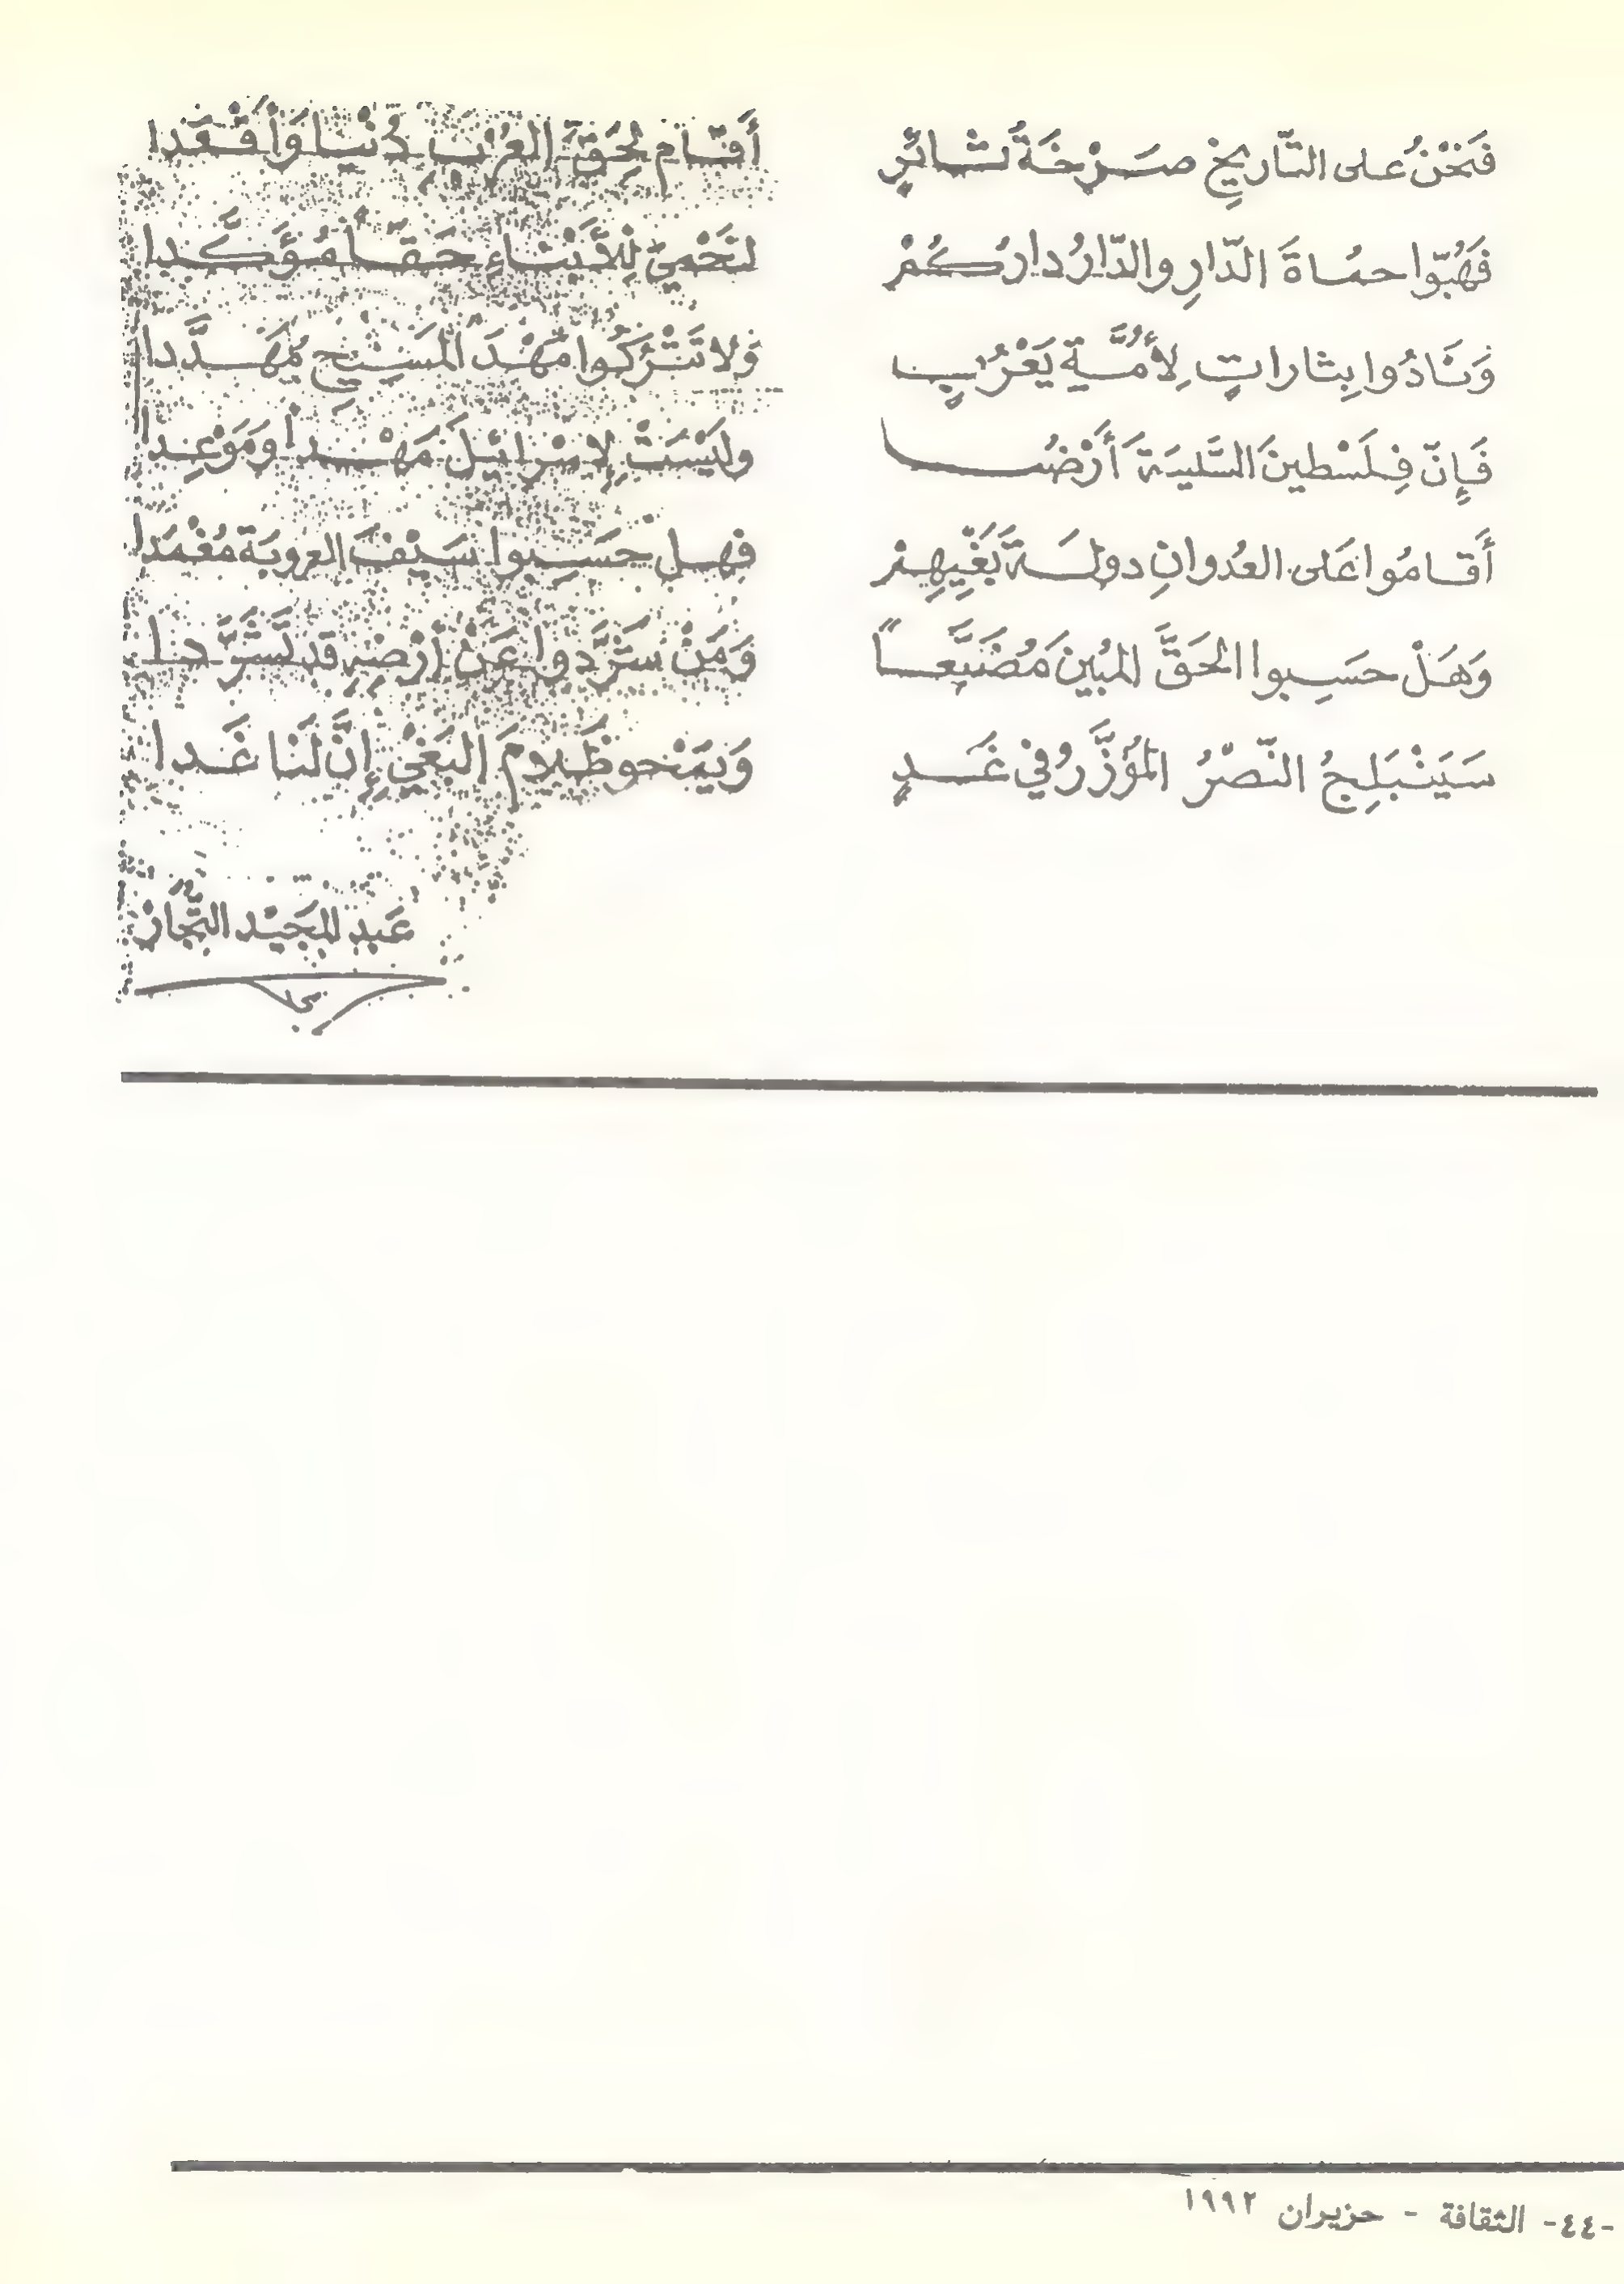 فَنَحْنُ على التّاريخِ صَرْخَةُ ثائرٍ أَقَامَ لِحَقِّ العُرْبِ دُنْيا وَأَقْعَدا
فَهُبّوا حماةَ الدّارِ والدّارُ دارُكُمْ لنَحْمِيَ لِلأَبْناءِ حَقّاً مُؤَكَّدا
وَنَادُوا بِثاراتٍ لِأُمَّةِ يَعْرُبٍ وَلا تَتْرُكُوا مَهْدَ المَسيْحِ مُهَدَّدا
فَإِنّ فِلَسْطينَ السَّليبَةَ أَرْضُنا وليَسْتْ لإِسْرائيلَ مَهْداً وَمَوْعِدا
أَقامُوا عَلى العُدوانِ دولَةَ بَغْيِهِمْ فهل حَسَبوا سَيْفَ العروبَة مُغْمَدا
وَهَلْ حسَبوا الحَقَّ المُبينَ مُضَيَّعاً وَمَنْ شَرَّدوا عَنْ أرْضِهِ قد تَشَرَّدا
سَيَنْبَلِجُ النّصْرُ المُؤَزَّرُ في غَدٍ وَيَمْحو ظَلامَ البَغْيِ إِنَّ لَنا غَدا
عَبد المَجيْد النّجارْ
-٤٤- الثقافة - حزيران ١٩٩٢